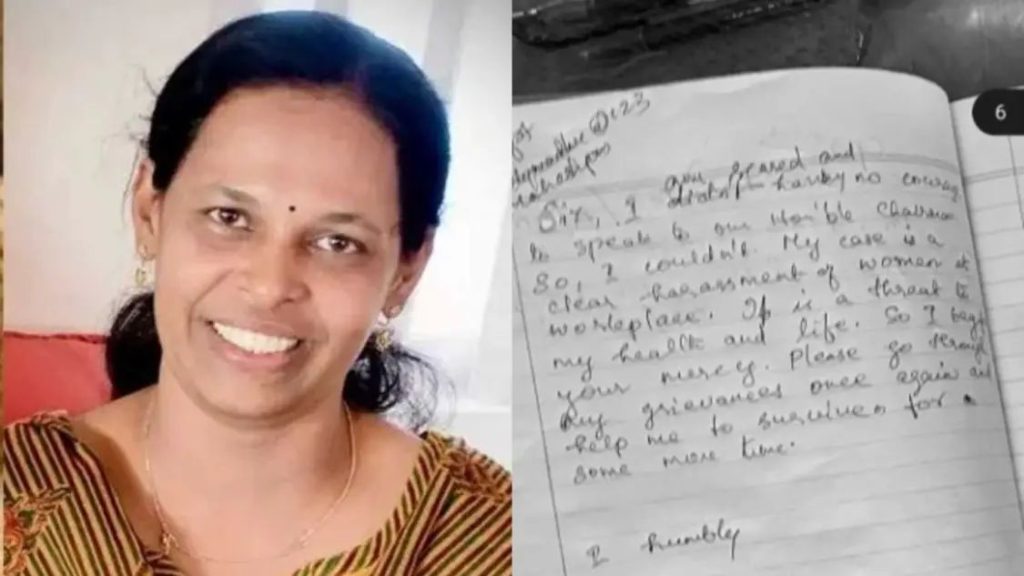 6
@123
Sir, I am scared and
having no courag
to speak to our Hon'ble Chairman
So, I couldn't. My case is a
clear harassment of women at
workplace. It is a threat to
my health and life. So I beg
your mercy. Please go through
my grievances once again and
help me to survive for
some more time.
humbly